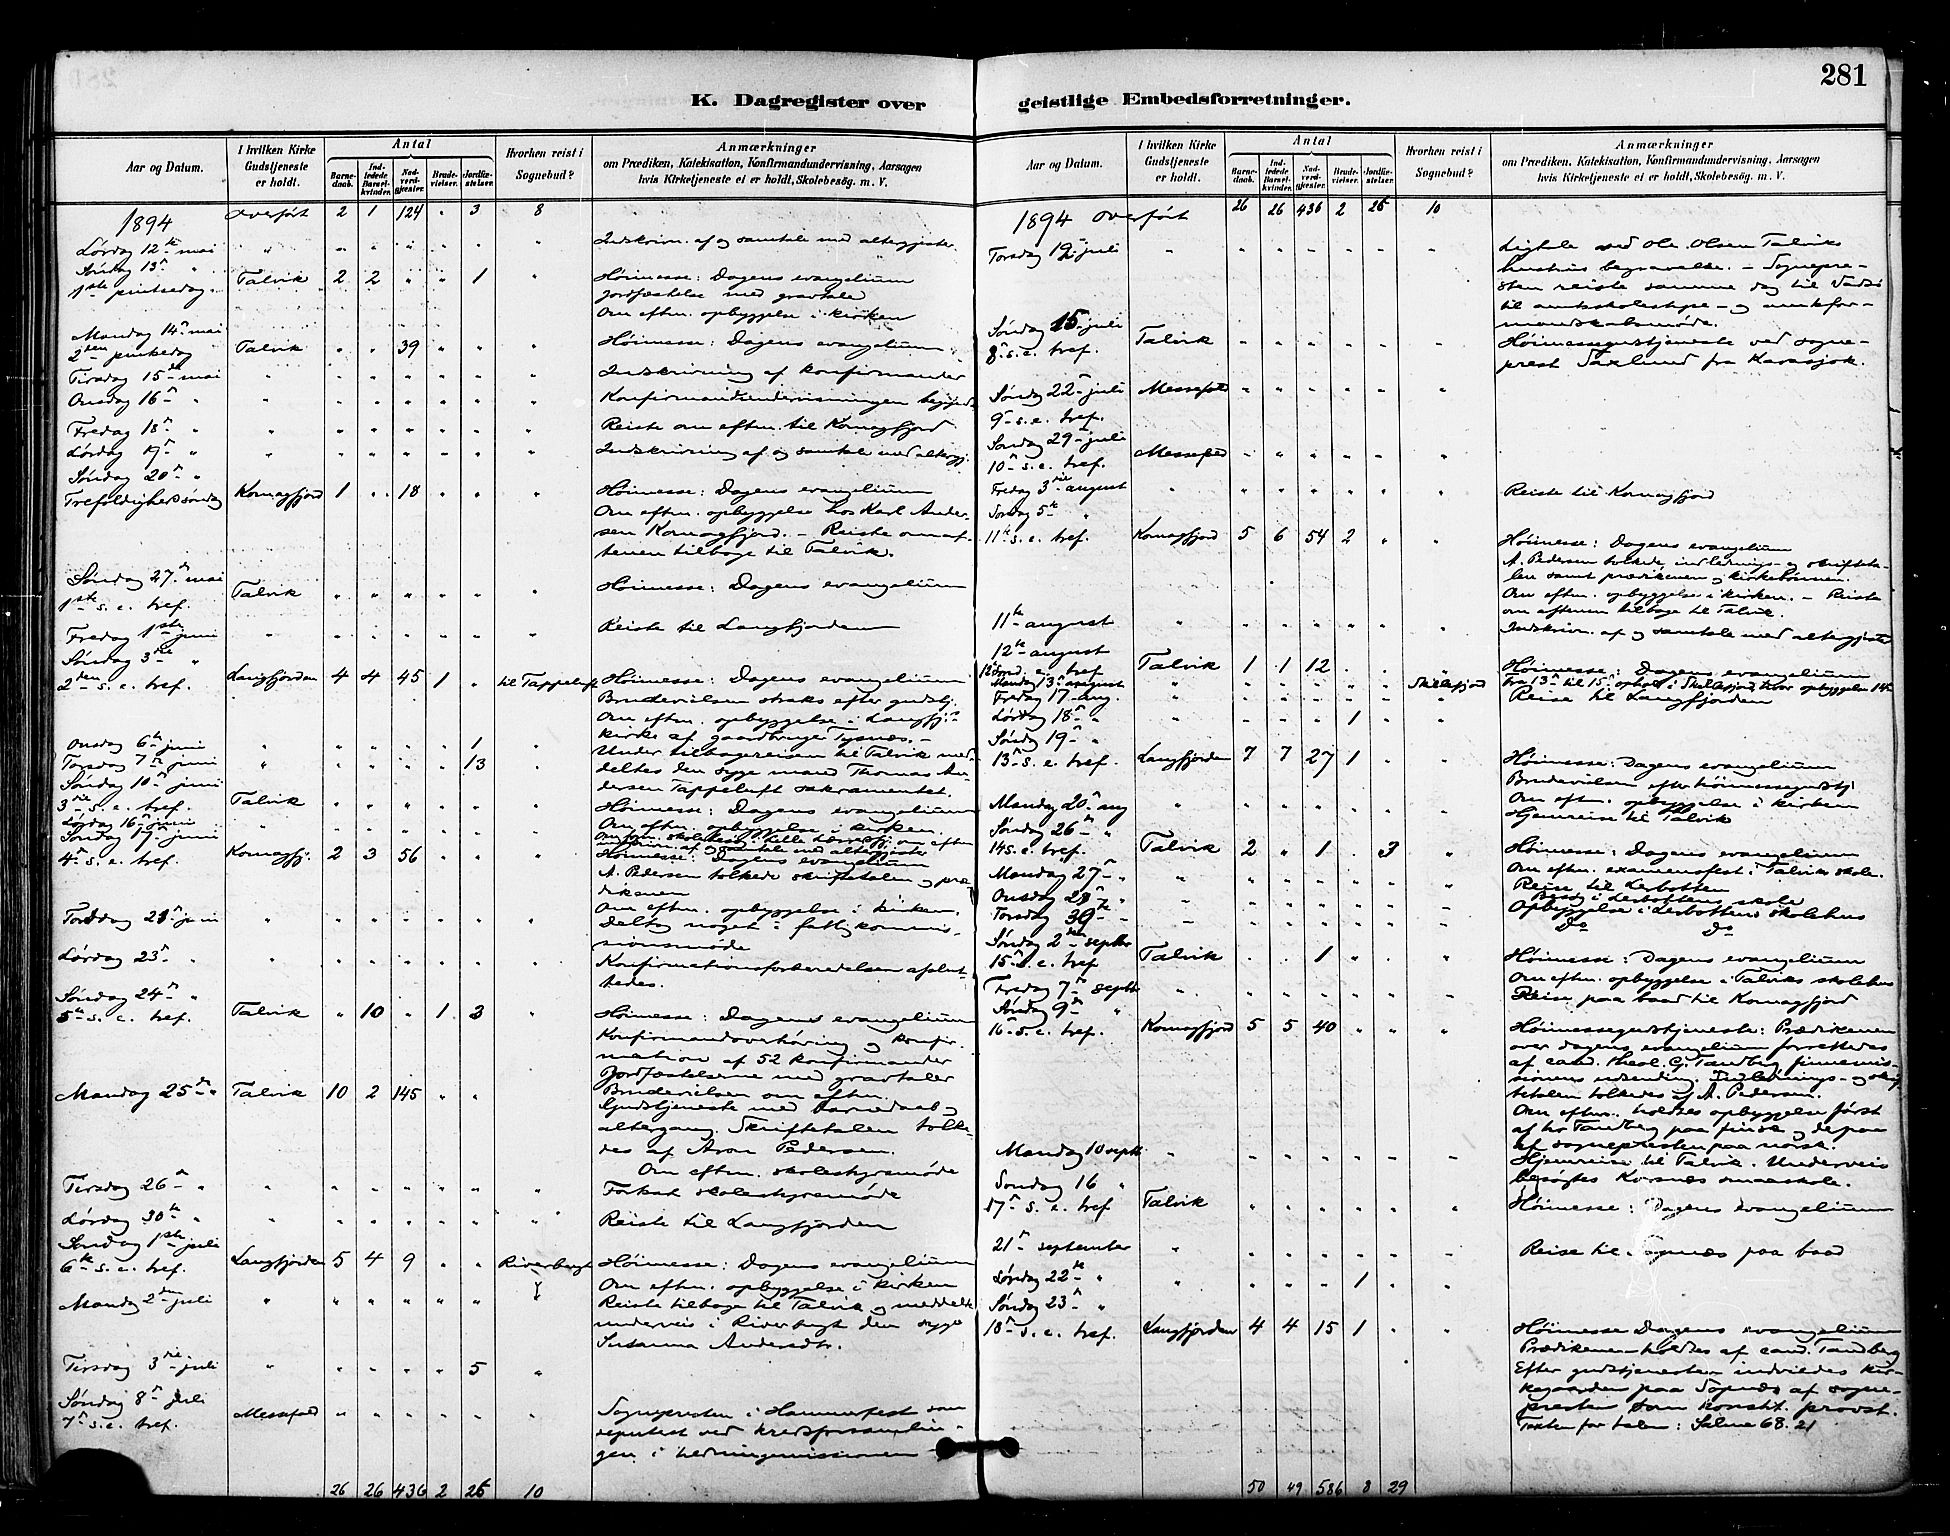 281
K. Dagregister over geistlige Embedsforretninger.
Aar og Datum. I hvilken Kirke Gudstjeneste er holdt. Antal Barnedaab. Indledede Barselkvinder. Nadverdgjester. Brudevielser. Jordfæstelser. Hvorhen reist i Sognebud? Anmærkninger om Prædiken, Katekisation, Konfirmandundervisning, Aarsagen hvis Kirketjeneste ei er holdt, Skolebesøg. m. V.
1894 overført 2 1 124 " 3 8
Lørdag 12te mai " " " " " " " Indskrivn. af og samtale med altergjester.
Søndag 13de "
1ste pintsedag. Talvik 2 2 " " 1 " Høimesse: Dagens evangelium
Jordfæstelse med gravtale
Om eftm. opbyggelse i kirken
Mandag 14de mai
2den pinsedag Talvik " " 39 " " " Høimesse: Dagens evangelium
Tirsdag 15de mai " " " " " " " Indskrivning af konfirmander
Onsdag 16de " " " " " " " " Konfirmandundervisningen begynd.
Fredag 18de " " " " " " " " Reiste om eftm. til Komagfjord
Lørdag 19de " " " " " " " " Indskrivning af og samtale med altergj.
Søndag 20de "
Trefoldighedssøndag Komagfjord 1 " 18 " " " Høimesse: Dagens evangelium
Om eftm. opbyggelse hos Karl Andersen
Komagfjord. – Reiste om aftenen
tilbage til Talvik.
Søndag 27de mai
1ste s. e. tref. Talvik " " " " " " Høimesse: Dagens evangelium
Fredag 1ste juni " " " " " " " Reiste til Langfjorden
Søndag 3die "
2den s. e. tref. Langfjorden 4 4 45 1 " til Tappeluft Høimesse: Dagens evangelium
Brudevielsen straks efter gudstj.
Om eftm. opbyggelse i Langfj.
kirke af gaardbruger Tysnes. –
Onsdag 6te juni " " " " " 1 " Under tilbagereisen til Talvik meddeltes
Torsdag 7de juni " " " " " 13 " den syge mand Thomas Andersen
Tappeluft sakramentet.
Søndag 10de juni
3die s. e. tref. Talvik " " " " " " Høimesse: Dagens evangelium
Om eftm. opbyggelse i kirken.
Lørdag 16de juni " " " " " " "
Søndag 17de juni
4de s. e. tref. Komagfj. 2 3 56 " " " Høimesse: Dagens evangelium
A. Pedersen tolkede skriftetalen og prædikenen
Om eftm. opbyggelse i kirken.
Torsdag 21de juni " " " " " " " Deltog noget i fattigkommissionsmøde
Lørdag 23de " " " " " " " " Konfirmationsforberedelsen afsluttedes.
Søndag 24de "
5te s. e. tref. Talvik " 10 " 1 3 " Høimesse: Dagens evangelium
Konfirmandoverhøring og konfirmation
af 52 konfirmander
Jordfæstelserne med gravtaler
Brudevielsen om eftm.
Mandag 25de " Talvik 10 2 145 " " Gudstjeneste med barnedaab og
altergang. Skriftetalen tolkedes
af Aron Pedersen.
Om eftm. skolestyremøde
Tirsdag 26de " " " " " " " " Fortsat skolestyremøde
Lørdag 30te " " " " " " " " Reiste til Langfjorden
Søndag 1ste juli
6te s. e. tref. Langfjorden 5 4 9 " " Riverbugt Høimesse: Dagens evangelium
Om eftm. opbyggelse i kirken
Mandag 2den juli " " " " " " " Reiste tilbage til Talvik og meddelte
underveis i Riverbugt den syge
Susanna Andersdtr.
Tirsdag 3die juli " " " " " 5 "
Søndag 8de juli
7de s. e. tref. Messefald " " " " " " Sognepresten i Hammerfest som
reputeret ved kredsforsamlingen
i hedningemissionen
26 26 436 2 25 10
Aar og Datum. I hvilken Kirke Gudstjeneste er holdt. Antal Barnedaab. Indledede Barselkvinder. Nadverdgjester. Brudevielser. Jordfæstelser. Hvorhen reist i Sognebud? Anmærkninger om Prædiken, Katekisation, Konfirmandundervisning, Aarsagen hvis Kirketjeneste ei er holdt, Skolebesøg. m. V.
1894 overført 26 26 436 2 25 10
Torsdag 12te juli " " " " " " " Ligtale ved Ole Olsen Talviks
hustrus begravelse. – Sognepresten
reiste samme dag til Vadsø
til amtsskolestyre- og
formandskabsmøde.
Søndag 15 juli
8de s. e. tref. Talvik " " " " " " Høimessegudstjeneste ved sogneprest
Saxlund fra Karasjok.
Søndag 22 juli Messefald " " " " " "
9de s. e. tref.
Søndag 29 juli
10de s. e. tref. Messefald " " " " " "
Fredag 3die august " " " " " " " Reiste til Komagfjord
Søndag 5te "
11te s. e. tref. Komagfjord 5 6 54 2 " " Høimesse: Dagens evangelium
A. Pedersen tolkede indlednings- og skriftetalen
samt prædikenen og kirkebønnen.
Om eftm. opbyggelse i kirken. – Reiste
om aftenen tilbage til Talvik.
11te august " " " " " " " Indskrivn. af og samtale med altergjester
12te august
12te Sønd. e. tref Talvik 1 1 12 " " " Høimesse: Dagens evangelium
Mandag 13de august " " " " " " Skillefjord Fra 13de til 15de ophold i Skillefjord, hvor opbyggelse 14de
Fredag 17 aug. " " " " " " " Reise til Langfjorden
Lørdag 18de " " " " " 1 " "
Søndag 19de "
13de s. e. tref. Langfjorden 7 7 27 1 " " Høimesse: Dagens evangelium
Brudevielsen efter høimessegudstj.
Om eftm. opbyggelse i kirken
Mandag 20de aug " " " " " " Hjemreise til Talvik
Søndag 26te "
14 s. e. tref. Talvik 2 " 1 " 3 " Høimesse: Dagens evangelium
Om eftm. examensfest i Talviks skole.
Mandag 27de " " " " " " " " Reise til Lerbotten
Onsdag 28de " " " " " " " " Besøg i Lerbottens skole
Torsdag 30te " " " " " " " " Opbyggelse i Lerbottens skolehus
Do Do
Søndag 2den septbr
15de s. e. tref Talvik " " 1 " " " Høimesse: Dagens evangelium
Om eftm. opbyggelse i Talviks skolehus
Fredag 7de septb " " " " " " " Reise paa baad til Komagfjord
Søndag 9de "
16de s. e. tref. Komagfjord 5 5 40 " " " Høimessegudstjeneste: Prædikenen
over dagens evangelium forrettedes
af cand. theol. G. Tandberg finnemissionens
udsending. Indlednings- og skriftetalen
tolkedes af A. Pedersen.
Om eftm. holdtes opbyggelse først
af hr Tandberg paa finsk og derpaa
af sognepresten paa norsk.
Mandag 10 septb " " " " " " " Hjemreise til Talvik. Underveis
besøgtes Korsnes smaaskole.
Søndag 16 "
17de s. e. tref Talvik " " " " " " Høimesse: Dagens evangelium
21de september " " " " " " " Reise til Sopnes paa baad
Lørdag 22de " " " " " 1 " "
Søndag 23de "
18de s. e. tref. Langfjorden 4 4 15 1 " " Høimesse Dagens evangelium
Prædikenen holdtes af cand. Tandberg
Efter gudstjenesten indviedes kirkegaarden
paa Sopnes af sognepresten
som konst. provst.
Texten for talen: Salme 68. 21
50 49 586 8 29